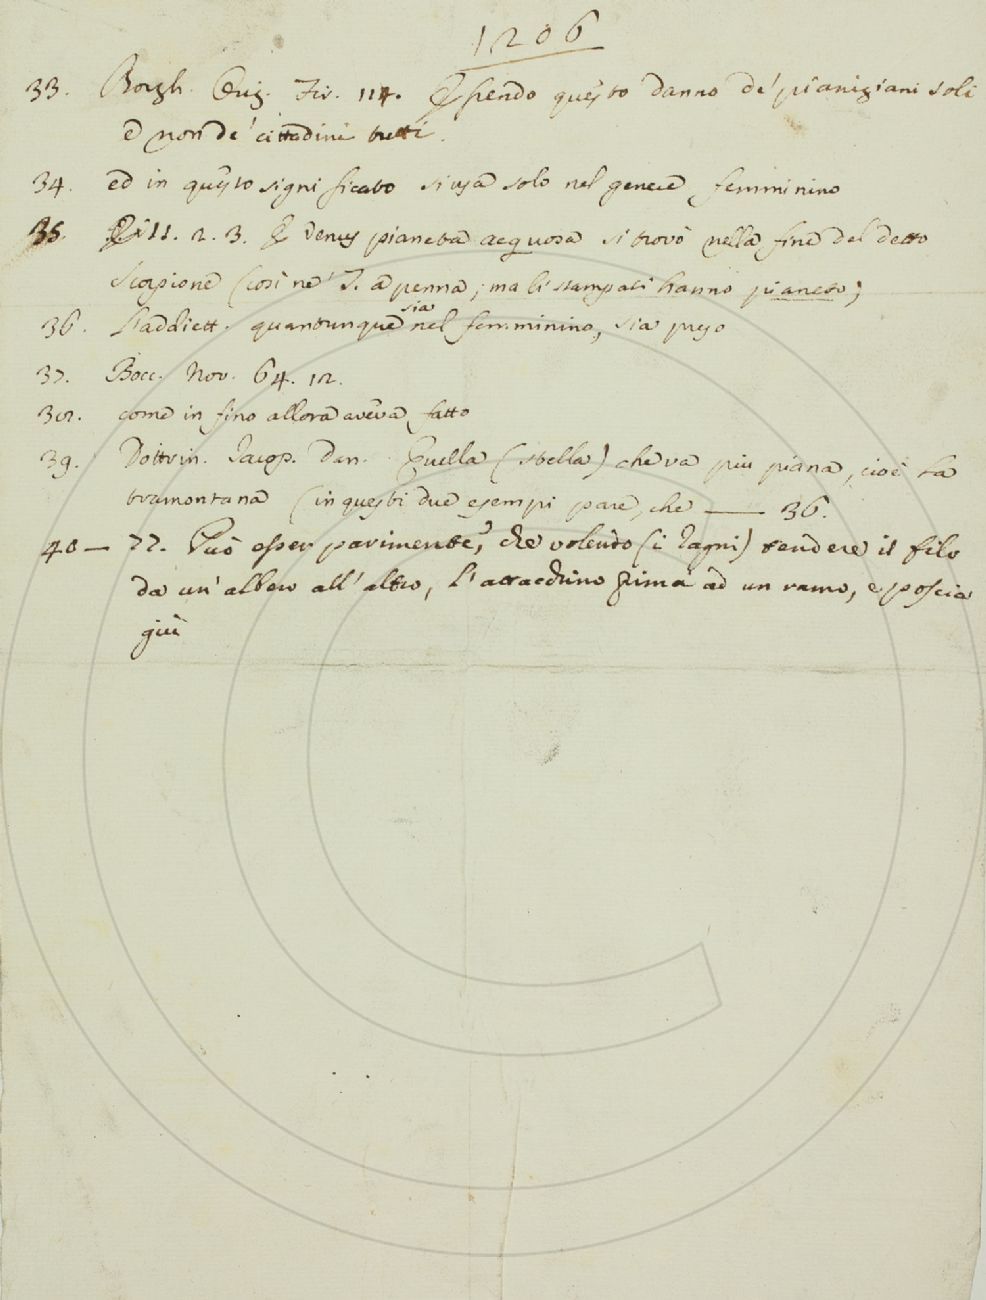 1206
33. Borgh. Orig. Fir. 114. Essendo questo danno de' pianigiani soli
e non de' cittadini tutti.
34. ed in questo significato si usa solo nel genere femminino
35. 11. 2. 3. E Venus pianeta acquosa si trovò nella fine del detto
Scorpione (così ne' T. a penna; ma li stampati hanno pianeto;
36. L'addiett. quantunque sia nel femminino, sia preso
37. Bocc. Nov. 64. 12.
38. come in fino allora aveva fatto
39. Dottrin. Jacop. Dan. Quella (stella) che va più piana, cioè la
tramontana (in questi due esempi pare, che — 36.
40 — 77. Può esser parimente, che volendo (i Ragni) tendere il filo
da un' albero all' altro, l'attacchino prima ad un ramo, e poscia
giù